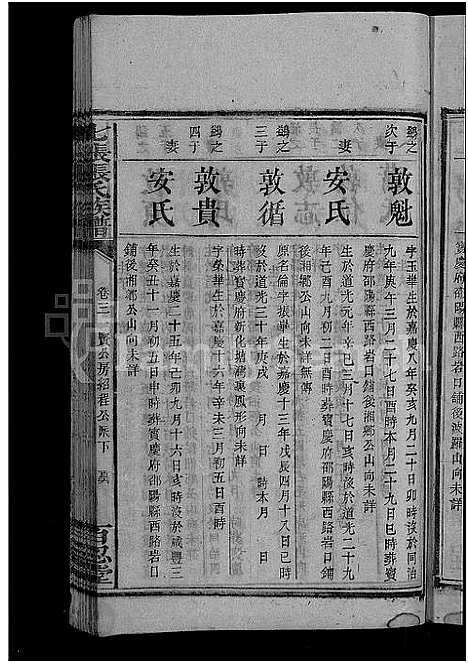 鷀之次子
敦魁
字玉華生於嘉慶八年癸亥九月二十日卯時沒於同治
九年庚午三月二十七日酉時本月二十九日巳時葬寶
慶府邵陽縣西路岩口鋪後湘鄉公山向未詳
妻
安氏
生於道光元年辛巳三月十七日亥時沒於道光二十九
年己酉九月初二日酉時葬寶慶府邵陽縣西路岩口鋪
後湘鄉公山向未詳無傳
之三子
敦循
原名倫字振華生於嘉慶十三年戊辰四月十八日巳時
沒於道光三十年庚戌 月 日 時本月 日
時葬寶慶府新化塘灣泉鳳形向未詳
之四子
敦貴
字榮華生於嘉慶十六年辛未三月初五日酉時
妻
安氏
生於嘉慶二十五年己卯九月十六日亥時沒於咸豐三
年癸丑十一月初五日申時葬寶慶府邵陽縣西路岩口
鋪後湘鄉公山向未詳
七張張氏族譜
卷三
公房紹程公派下
百忍堂
後慶府邵陽縣西路岩口鋪後波羅山向未詳